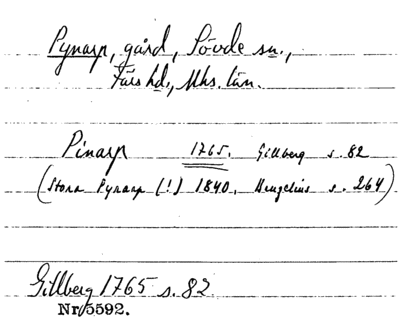 Pynarp, gård, Sövde sn.,
Färs hd., Mhs. län.
Pinarp 1765. Gillberg s. 82
(Stora Pynarp (!) 1840. Hengelius s. 264)
Gillberg 1765 s. 82
Nr. 5592.